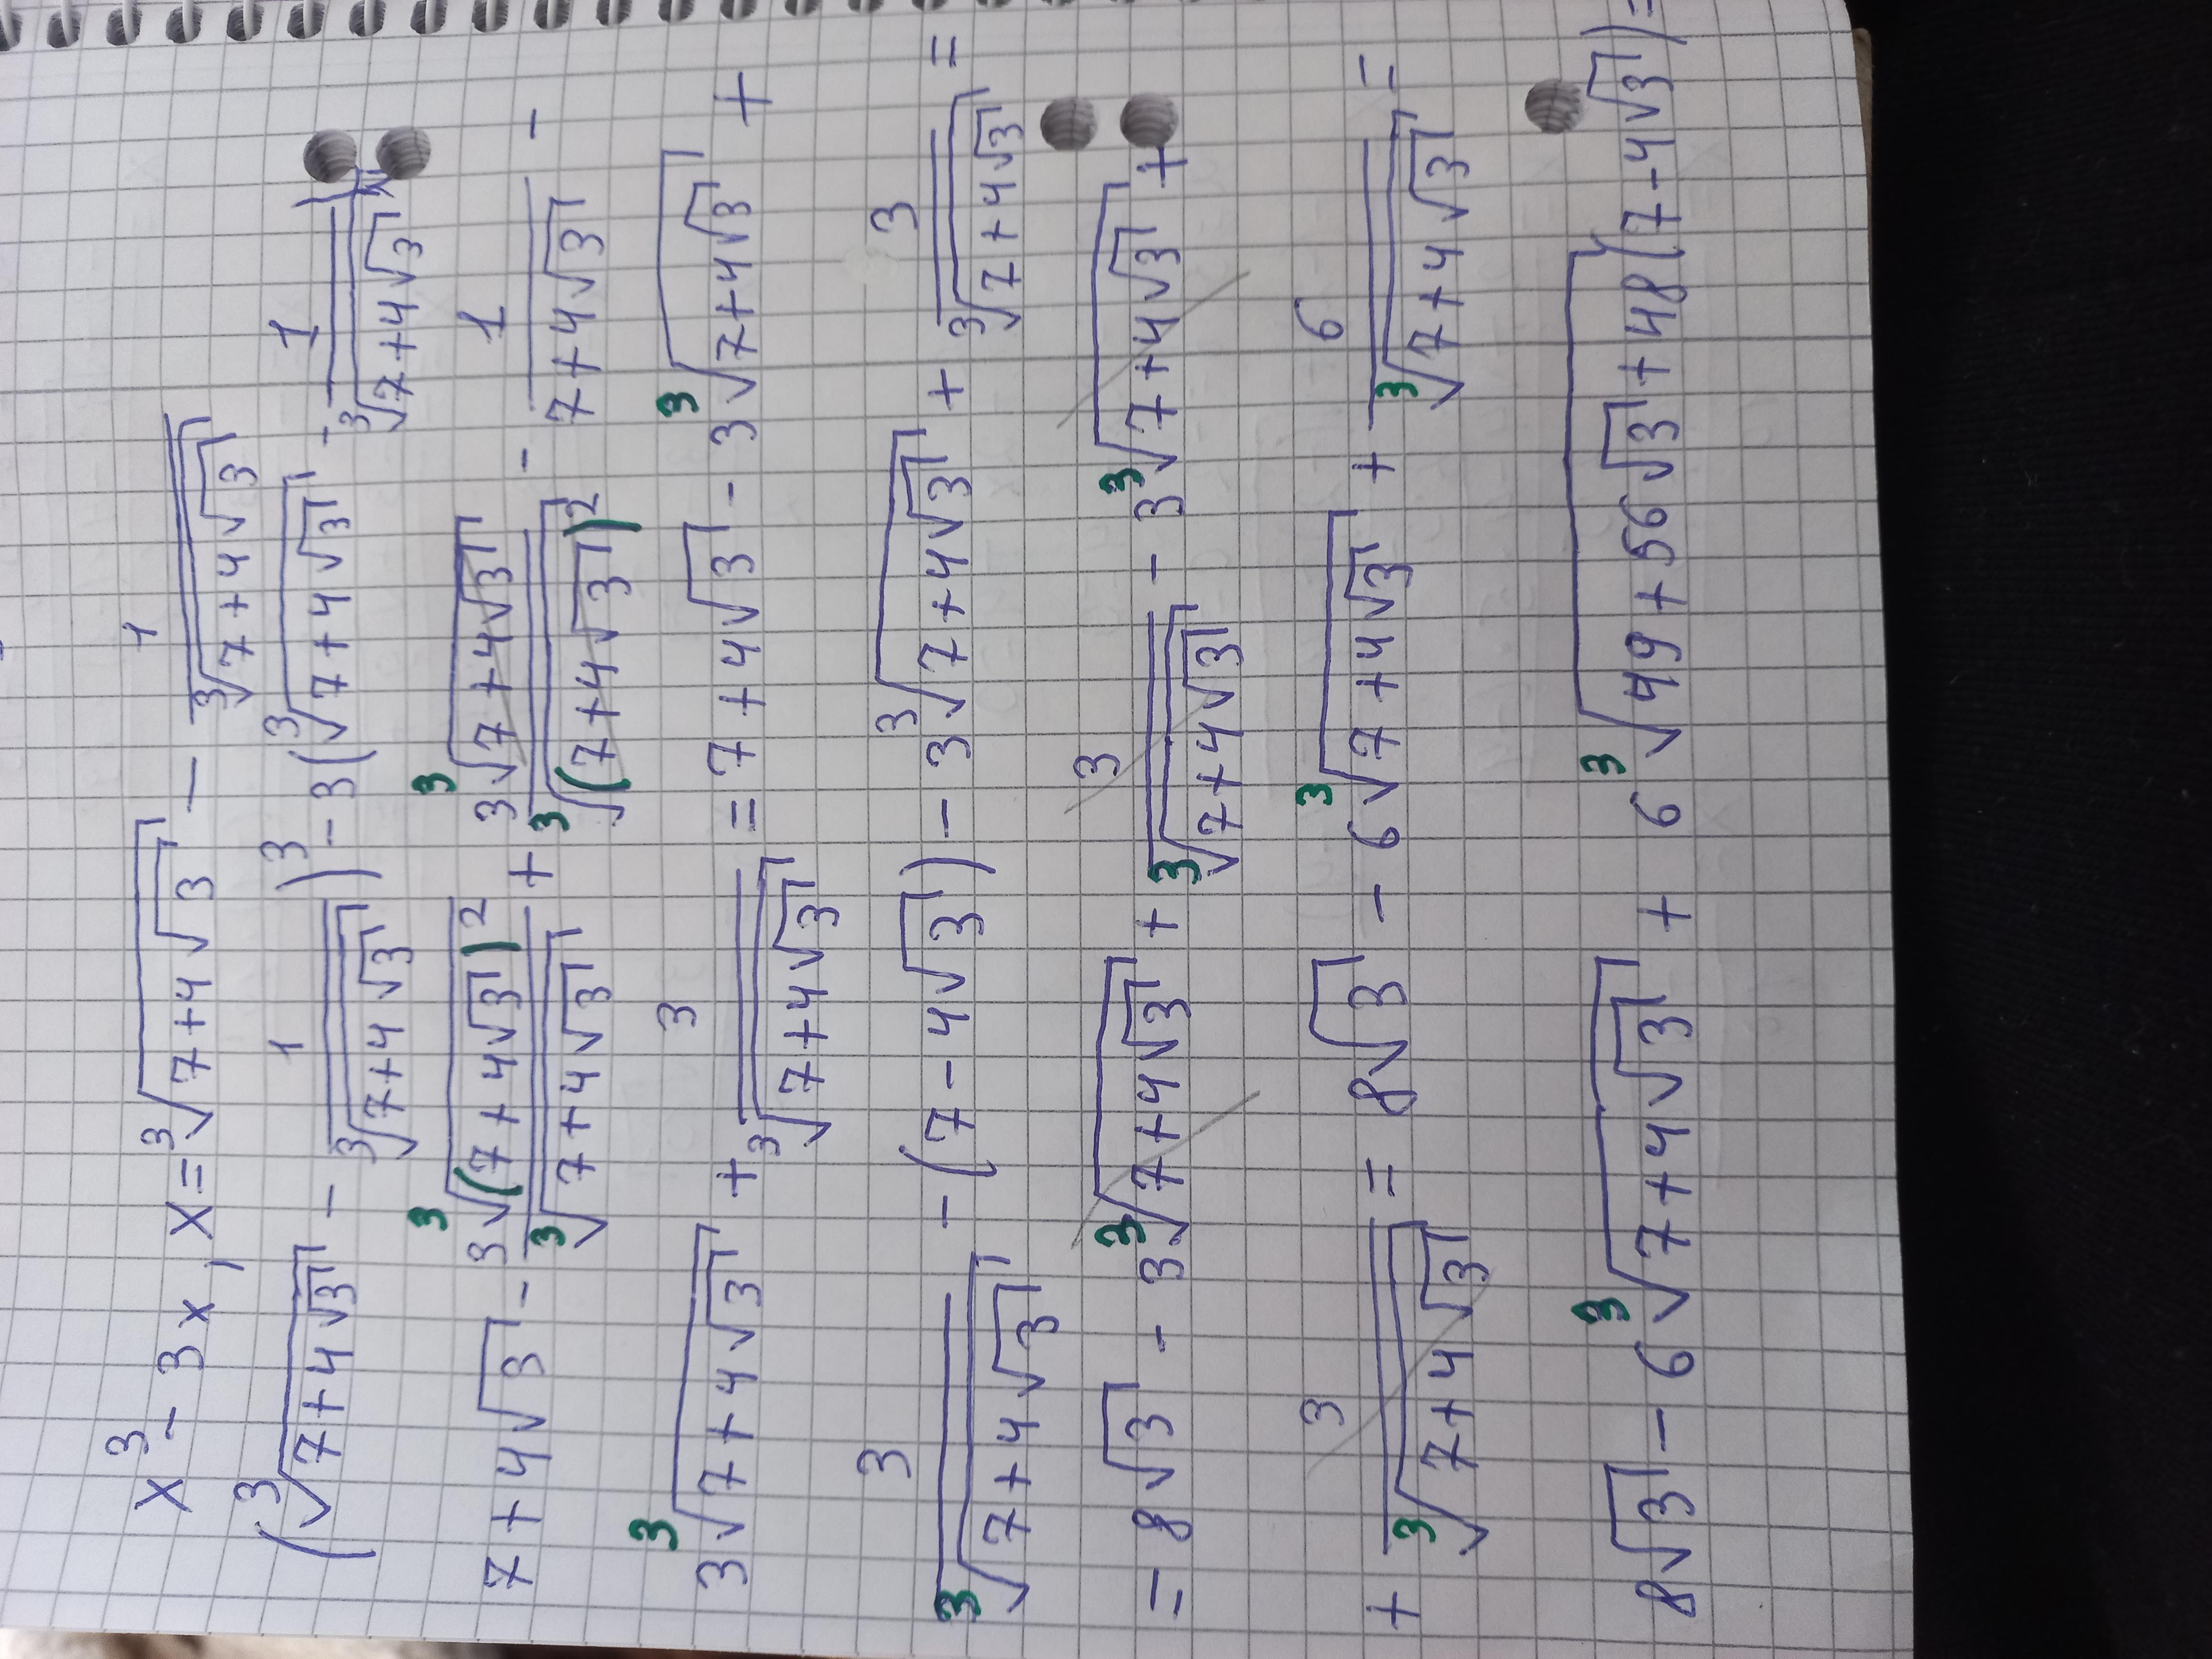 x³ - 3x, x = ∛(7+4√3) - 1/∛(7+4√3)
(∛(7+4√3) - 1/∛(7+4√3))³ - 3(∛(7+4√3) - 1/∛(7+4√3))
7+4√3 - 3∛(7+4√3)²/∛(7+4√3) + 3∛(7+4√3)/∛(7+4√3)² - 1/(7+4√3) -
3∛(7+4√3) + 3/∛(7+4√3) = 7+4√3 - 3∛(7+4√3) +
3/∛(7+4√3) - (7-4√3) - 3∛(7+4√3) + 3/∛(7+4√3) =
= 8√3 - 3∛(7+4√3) + 3/∛(7+4√3) - 3∛(7+4√3) +
+ 3/∛(7+4√3) = 8√3 - 6∛(7+4√3) + 6/∛(7+4√3) =
8√3 - 6∛(7+4√3) + 6∛(49+56√3+48)(7-4√3) =